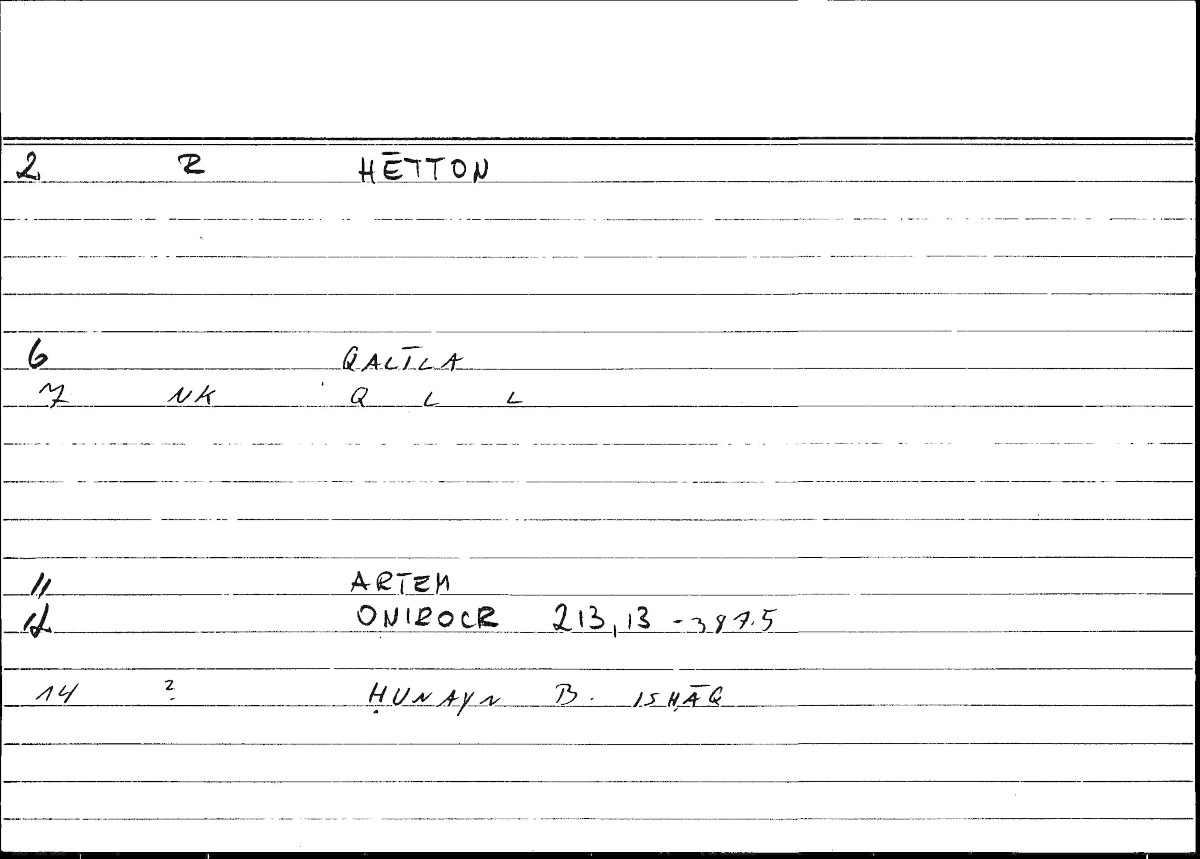 2 R HĒTTON
6 QALĪLA
7 NK Q L L
11 ARTEM
12 ONIROCR 213,13 - 387.5
14 ? ḤUNAYN B. ISḤĀQ